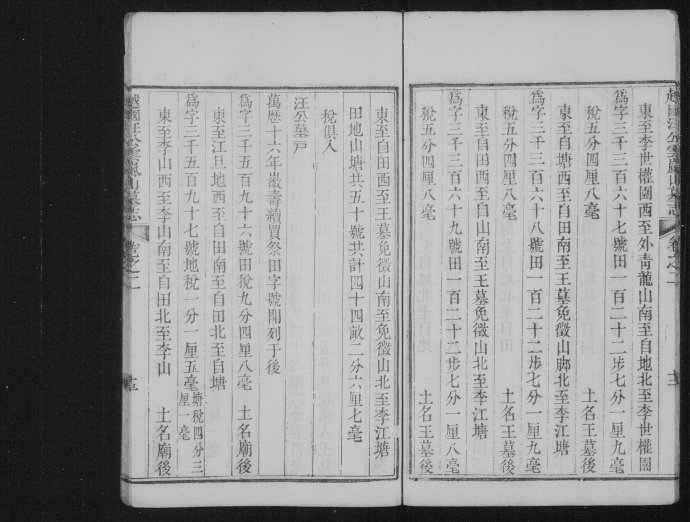 東至李世權園西至外青龍山南至自地北至李世權園
為字三千三百六十七號田一百二十二步七分一厘九毫
稅五分四厘八毫　土名王墓後
東至自塘西至自田南至王墓免徵山脚北至李江塘
為字三千三百六十八號田一百二十二步七分一厘九毫
稅五分四厘八毫　土名王墓後
東至自田西至自山南至王墓免徵山北至李江塘
為字三千三百六十九號田一百二十二步七分一厘八毫
稅五分四厘八毫　土名王墓後
越國汪公雲嵐山墓志
卷之二
十三
東至自田西至王墓免徵山南至免徵山北至李江塘
田地山塘共五十號共計四十四畝二分六厘七毫
稅俱入
汪公墓戸
萬歴十六年巖壽續買祭田字號開列于後
為字三千五百九十六號田稅九分四厘八毫　土名廟後
東至江旦地西至自田南至自田北至自塘
為字三千五百九十七號地稅一分一厘五毫塘稅四分三厘一毫
東至李山西至李山南至自田北至李山　土名廟後
越國汪公雲嵐山墓志
卷之二
十三